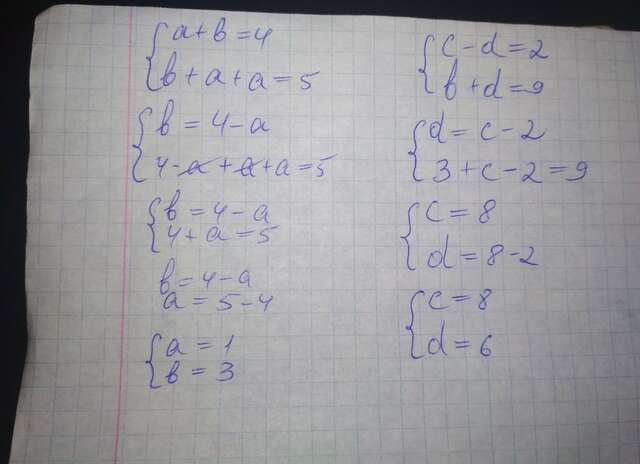 a+b=4
b+a+a=5
b=4-a
4-a+a+a=5
b=4-a
4+a=5
b=4-a
a=5-4
a=1
b=3
c-d=2
b+d=9
d=c-2
3+c-2=9
c=8
d=8-2
c=8
d=6